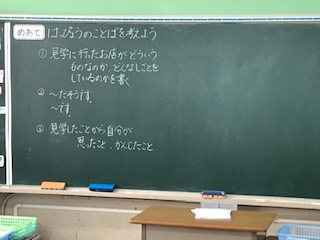 めあて はっぴょうのことばを考えよう
① 見学に行ったお店がどういう
ものなのか、どんなしごとを
しているのかを書く
② 〜だそうです。
〜です。
③ 見学したことから自分が
思ったこと、かんじたこと